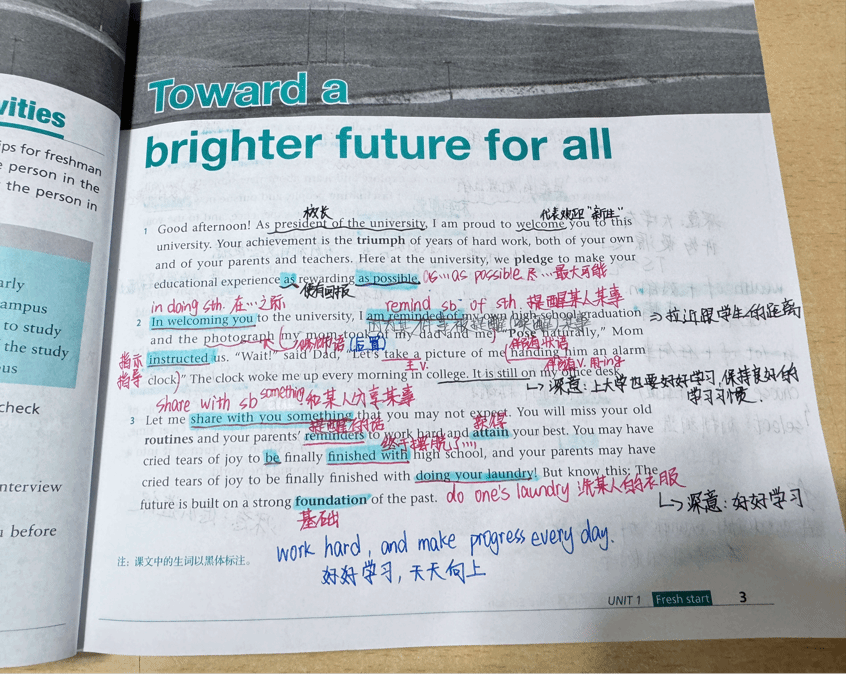 vities
ps for freshman
person in the
the person in
arly
ampus
to study
the study
us
check
nterview
before
Toward a
brighter future for all
校长
代表欢迎“新生”
1 Good afternoon! As president of the university, I am proud to welcome you to this
university. Your achievement is the triumph of years of hard work, both of your own
and of your parents and teachers. Here at the university, we pledge to make your
educational experience as rewarding as possible. as…as possible 尽…最大可能
使有回报
in doing sth. 在…之际
remind sb. of sth. 提醒某人某事
2 In welcoming you to the university, I am reminded of my own high school graduation
⇒拉近跟学生的距离
因为某件事被提醒(唤醒)某事
and the photograph my mom took of my dad and me) "Pose naturally," Mom
修饰短语(后置)
伴随状语
指示
指导
instructed us. "Wait!" said Dad, "Let's take a picture of me (handing him an alarm
主v.
伴随v.用ing
clock)" The clock woke me up every morning in college. It is still on my office desk.
深意：上大学也要好好学习,保持良好的
学习习惯.
share with sb something 和某人分享某事
3 Let me share with you something that you may not expect. You will miss your old
提醒的话
获得
routines and your parents' reminders to work hard and attain your best. You may have
终于摆脱了…
cried tears of joy to be finally finished with high school, and your parents may have
cried tears of joy to be finally finished with doing your laundry! But know this: The
future is built on a strong foundation of the past. do one's laundry 洗某人的衣服
深意：好好学习
基础
work hard, and make progress every day.
好好学习，天天向上
注：课文中的生词以黑体标注。
UNIT 1 Fresh start 3